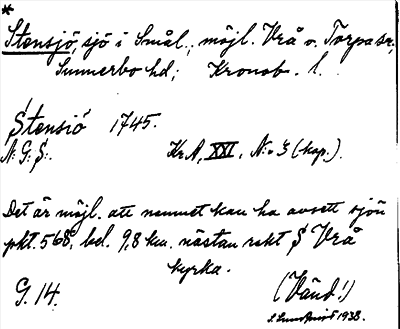 *
Stensjö, sjö i Smål.; möjl. Vrå o. Torpa sr,
Sunnerbo hd; Kronob. l.
Stensiö 1745.
N: G: S:.
Kr.A, XXI, N:o 3 (kop.).
Det är möjl. att namnet kan ha avsett sjön
pkt. 568, bel. 9,8 km. nästan rakt S Vrå
kyrka.
G. 14.
(Vänd!)
1938.